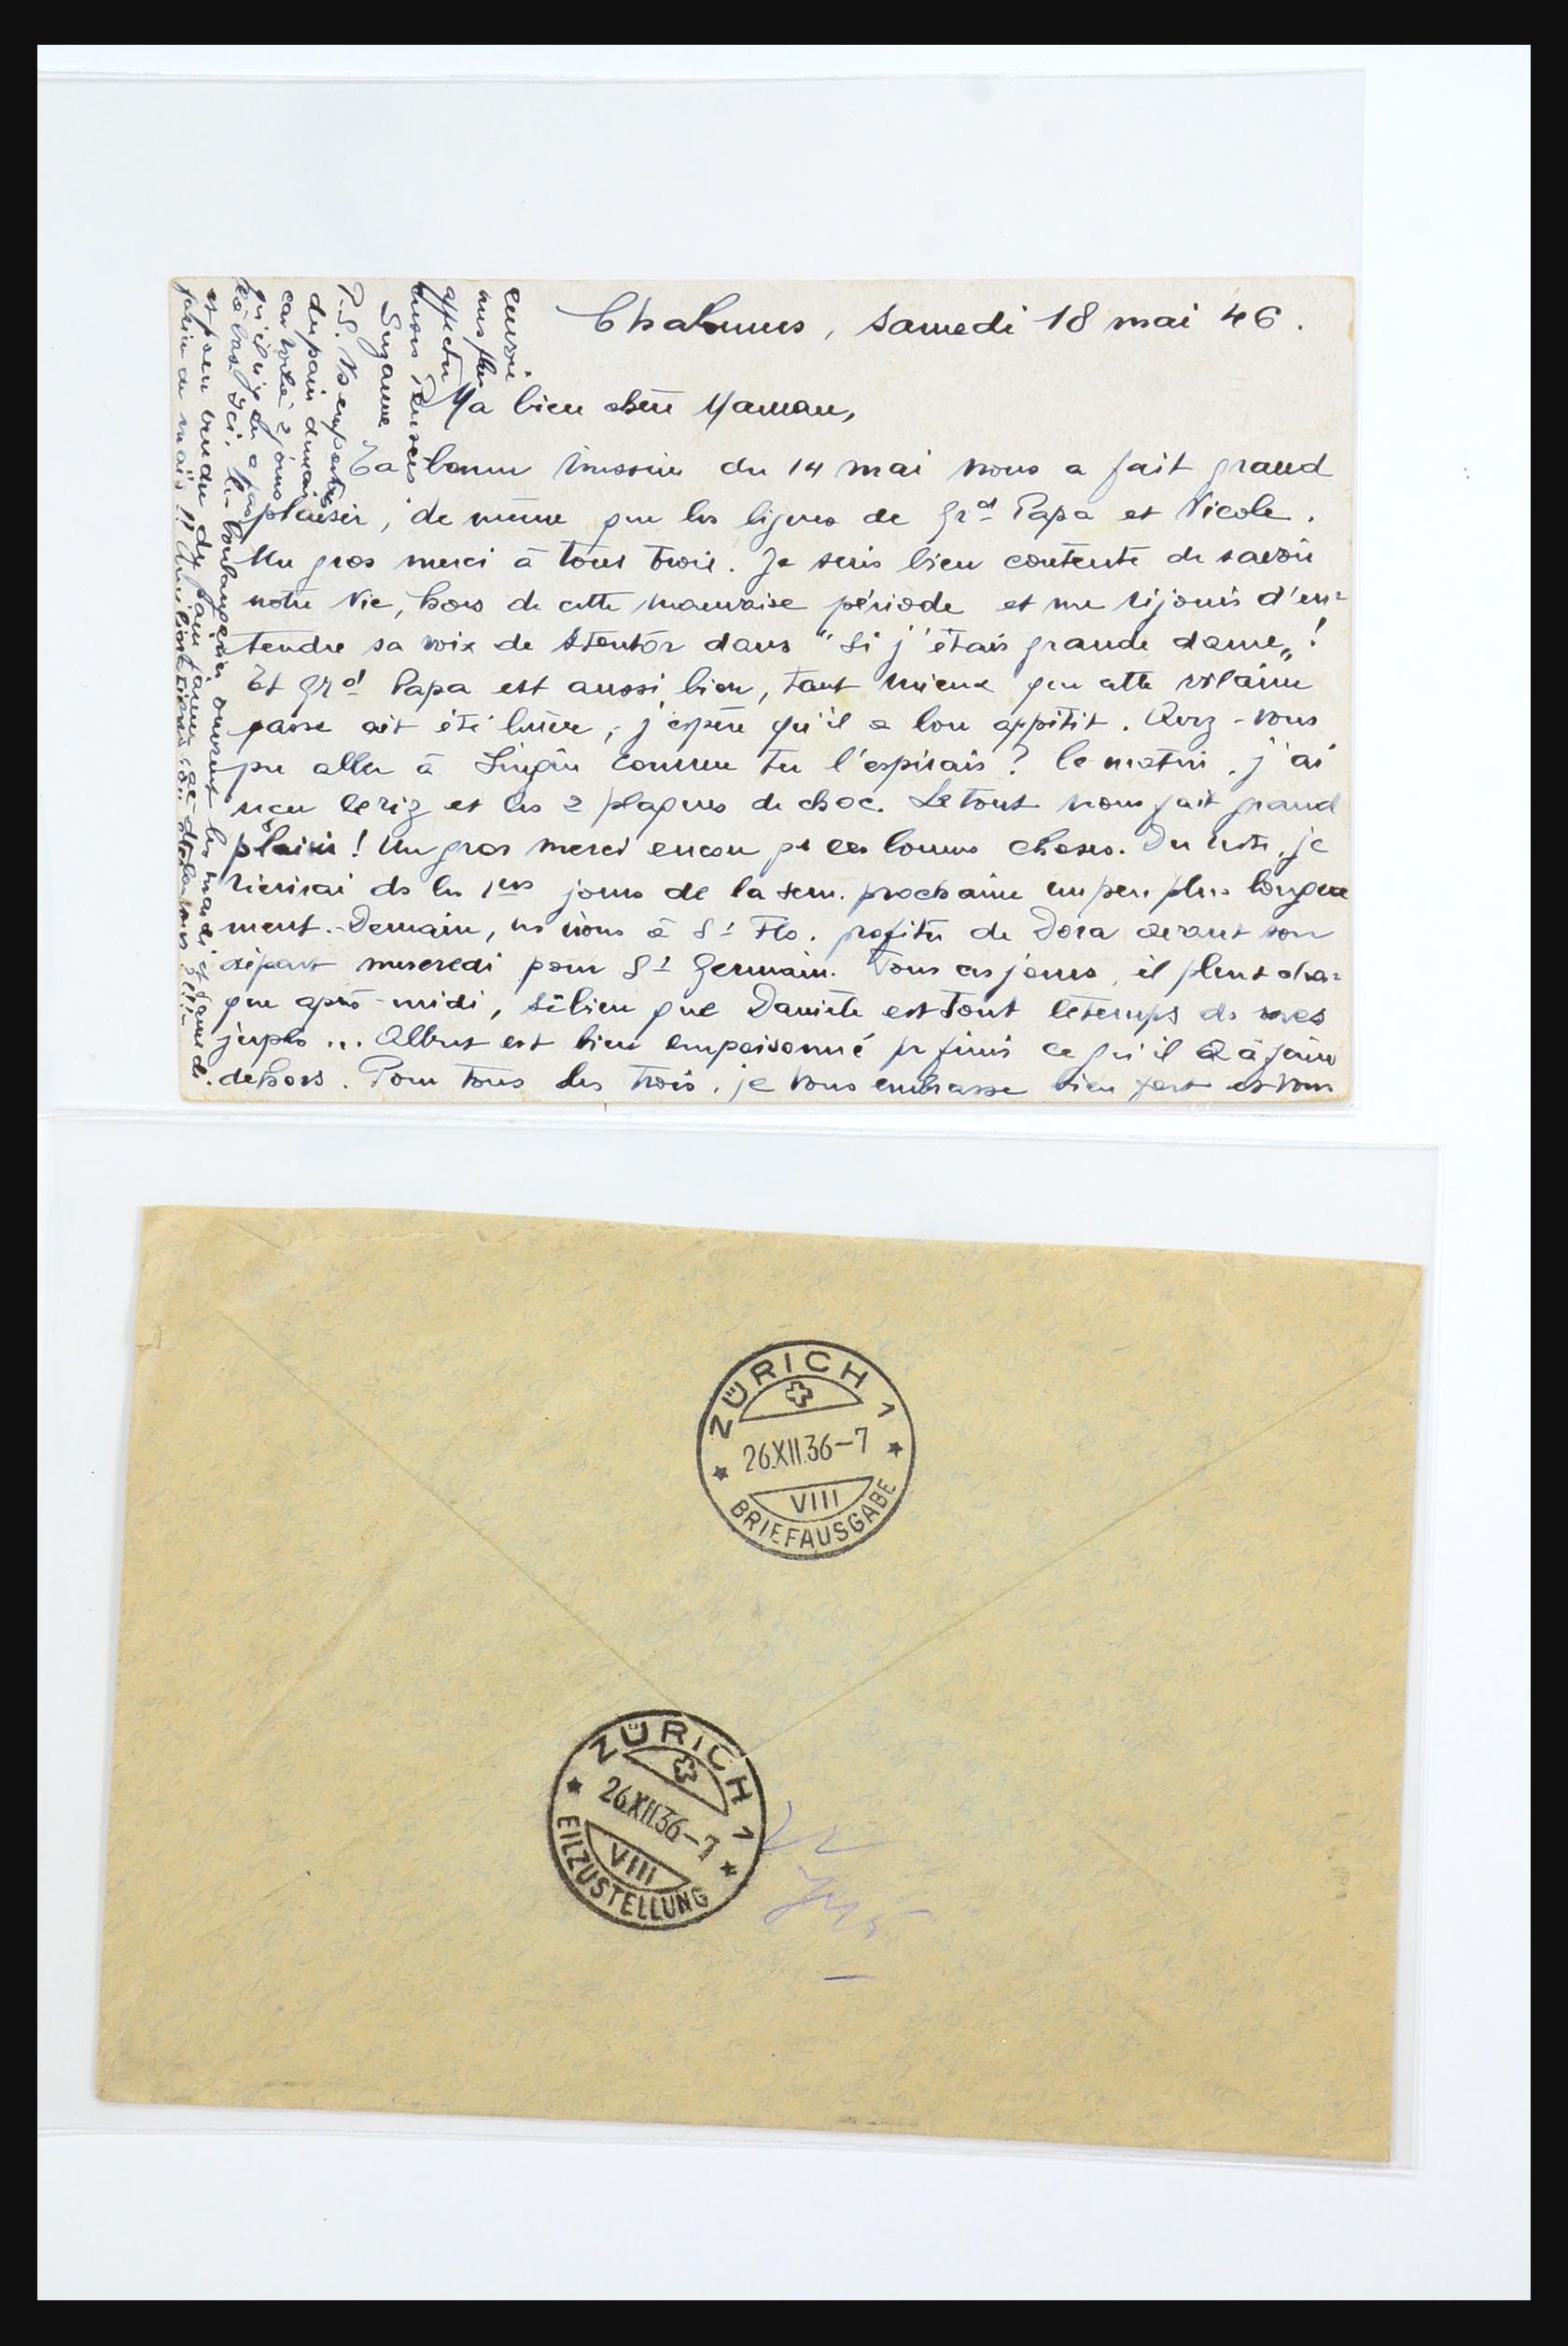 Chalmus, samedi 18 mai 46.
Ma bien chère Maman,
Ta bonne missive du 14 mai nous a fait grand
plaisir, de même que les lignes de Grd Papa et Nicole.
Un gros merci à tous trois. Je suis bien contente de savoir
notre Nic, hors de cette mauvaise période et me réjouis d'en=
tendre sa voix de stentor dans "Si j'étais grande dame"!
Et Grd Papa est aussi bien, tant mieux que cette vilaine
passe ait été brève, j'espère qu'il a bon appétit. Avez-vous
pu aller à comme tu l'espérais? Ce matin, j'ai
reçu le riz et les 2 plaques de choc. Le tout nous fait grand
plaisir! Un gros merci encore pr ces bonnes choses. Du reste, je
t'écrirai ds les 1ers jours de la sem. prochaine un peu plus longue
ment. Demain, ns irons à St Flo. profiter de Dora avant son
départ mercredi pour St Germain. Tous ces jours, il pleut cha=
que après-midi, si bien que Danièle est tout le temps ds mes
jupes... Albert est bien empoisonné pr finir ce qu'il a à faire
dehors. Pour tous les trois, je vous embrasse bien fort et vous
envoie
mes plus
affectu
euses pensées.
Suzanne
P.S. Ns emportons
du pain demain
car voilà 2 jours
qu'il n'y en a pas
là-bas. Ici, les boulangeries ouvrent les mardi et samedi
et peu vendre du pain jaune
farine de maïs!!
ZÜRICH 1
26.XII.36-7
VIII
BRIEFAUSGABE
ZÜRICH 1
26.XII.36-7
VIII
EILZUSTELLUNG